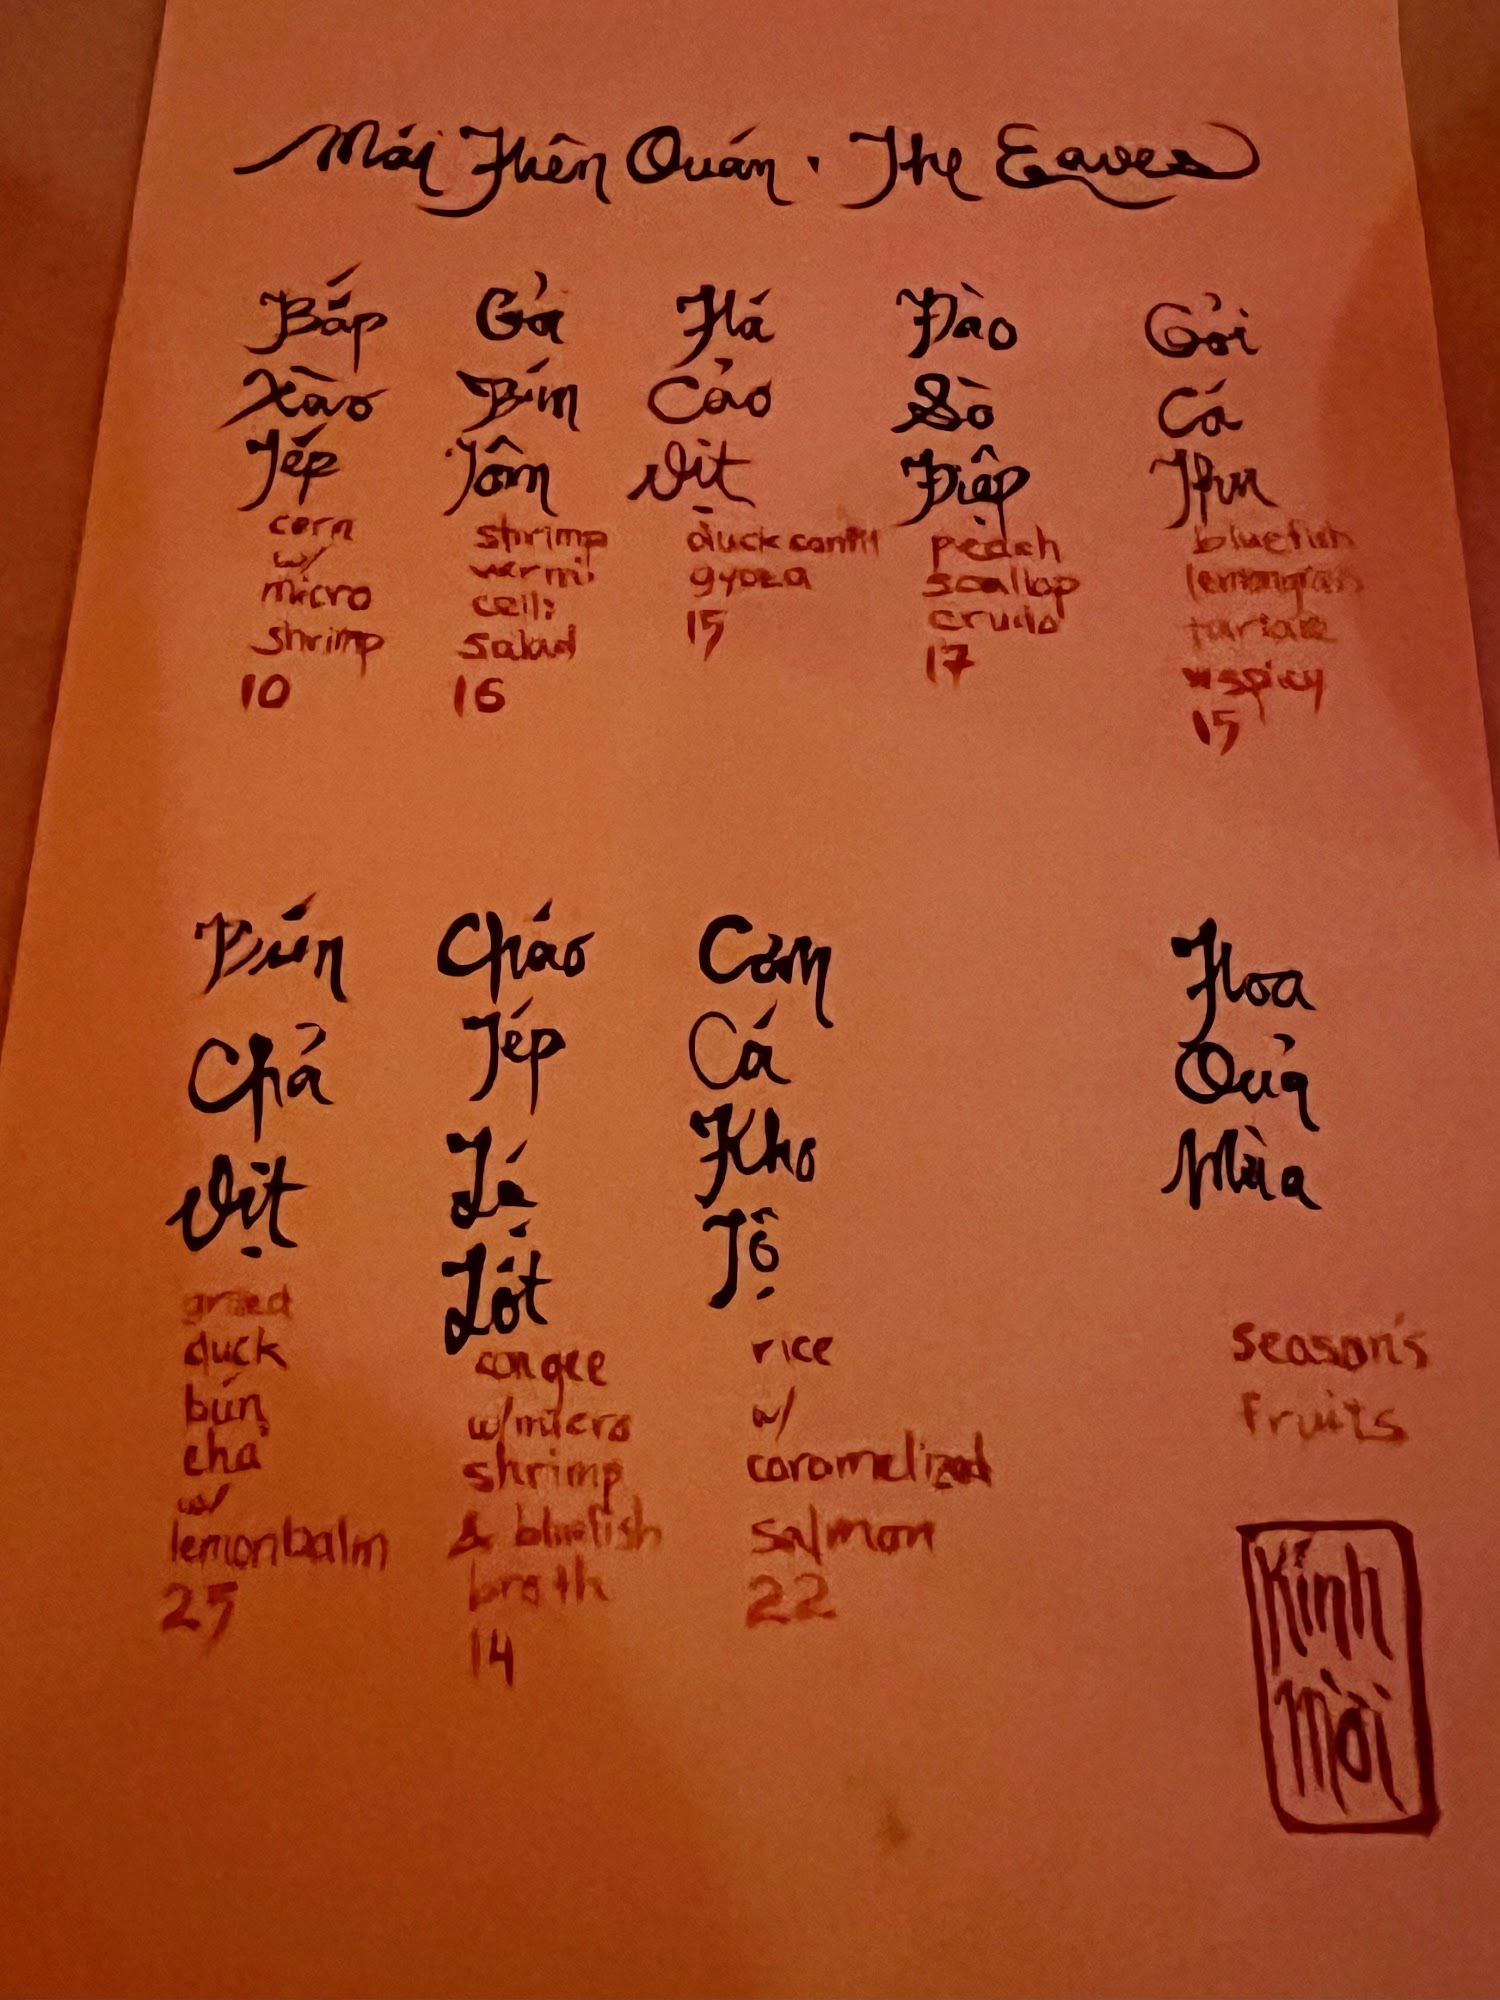 Mái Hiên Quán · The Eaves
Bắp
Xào
Tép
corn
w/
micro
shrimp
10
Gỏi
Bún
Tôm
shrimp
vermi
celli
salad
16
Há
Cảo
Vịt
duck confit
gyoza
15
Đào
Sò
Điệp
peach
scallop
crudo
17
Gỏi
Cá
Thu
bluefish
lemongrass
tartare
spicy
15
Bún
Chả
Vịt
duck
bún
chả
w/
lemonbalm
25
Cháo
Tép
Lá
Lốt
congee
w/micro
shrimp
& bluefish
broth
14
Cơm
Cá
Kho
Tộ
rice
w/
caramelized
salmon
22
Hoa
Quả
Mùa
season's
fruits
Kính
Mời